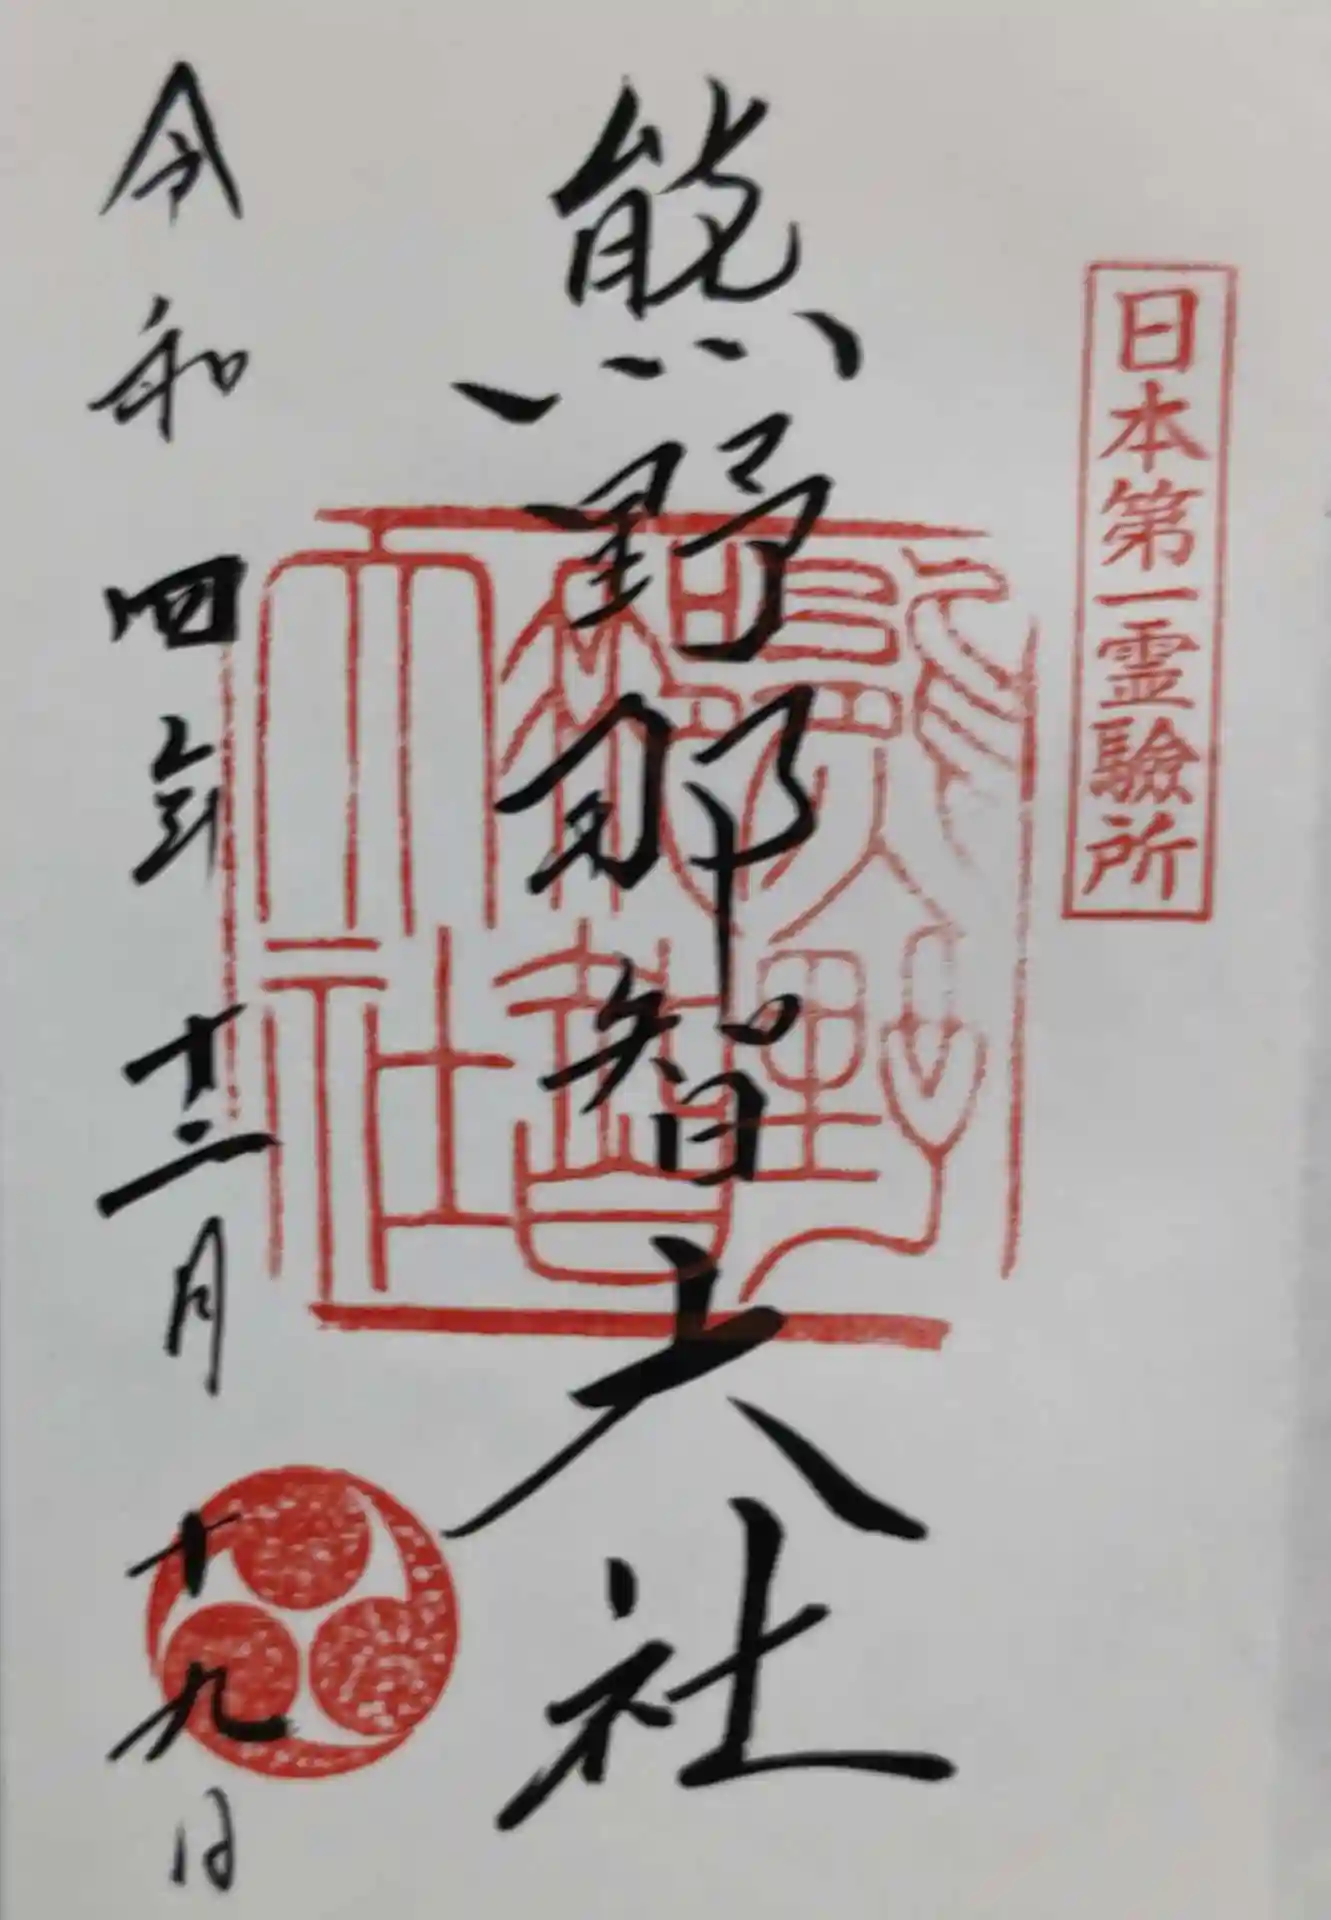 日本第一霊験所
熊野那智大社
熊野
那智
大社
令和四年十二月十九日